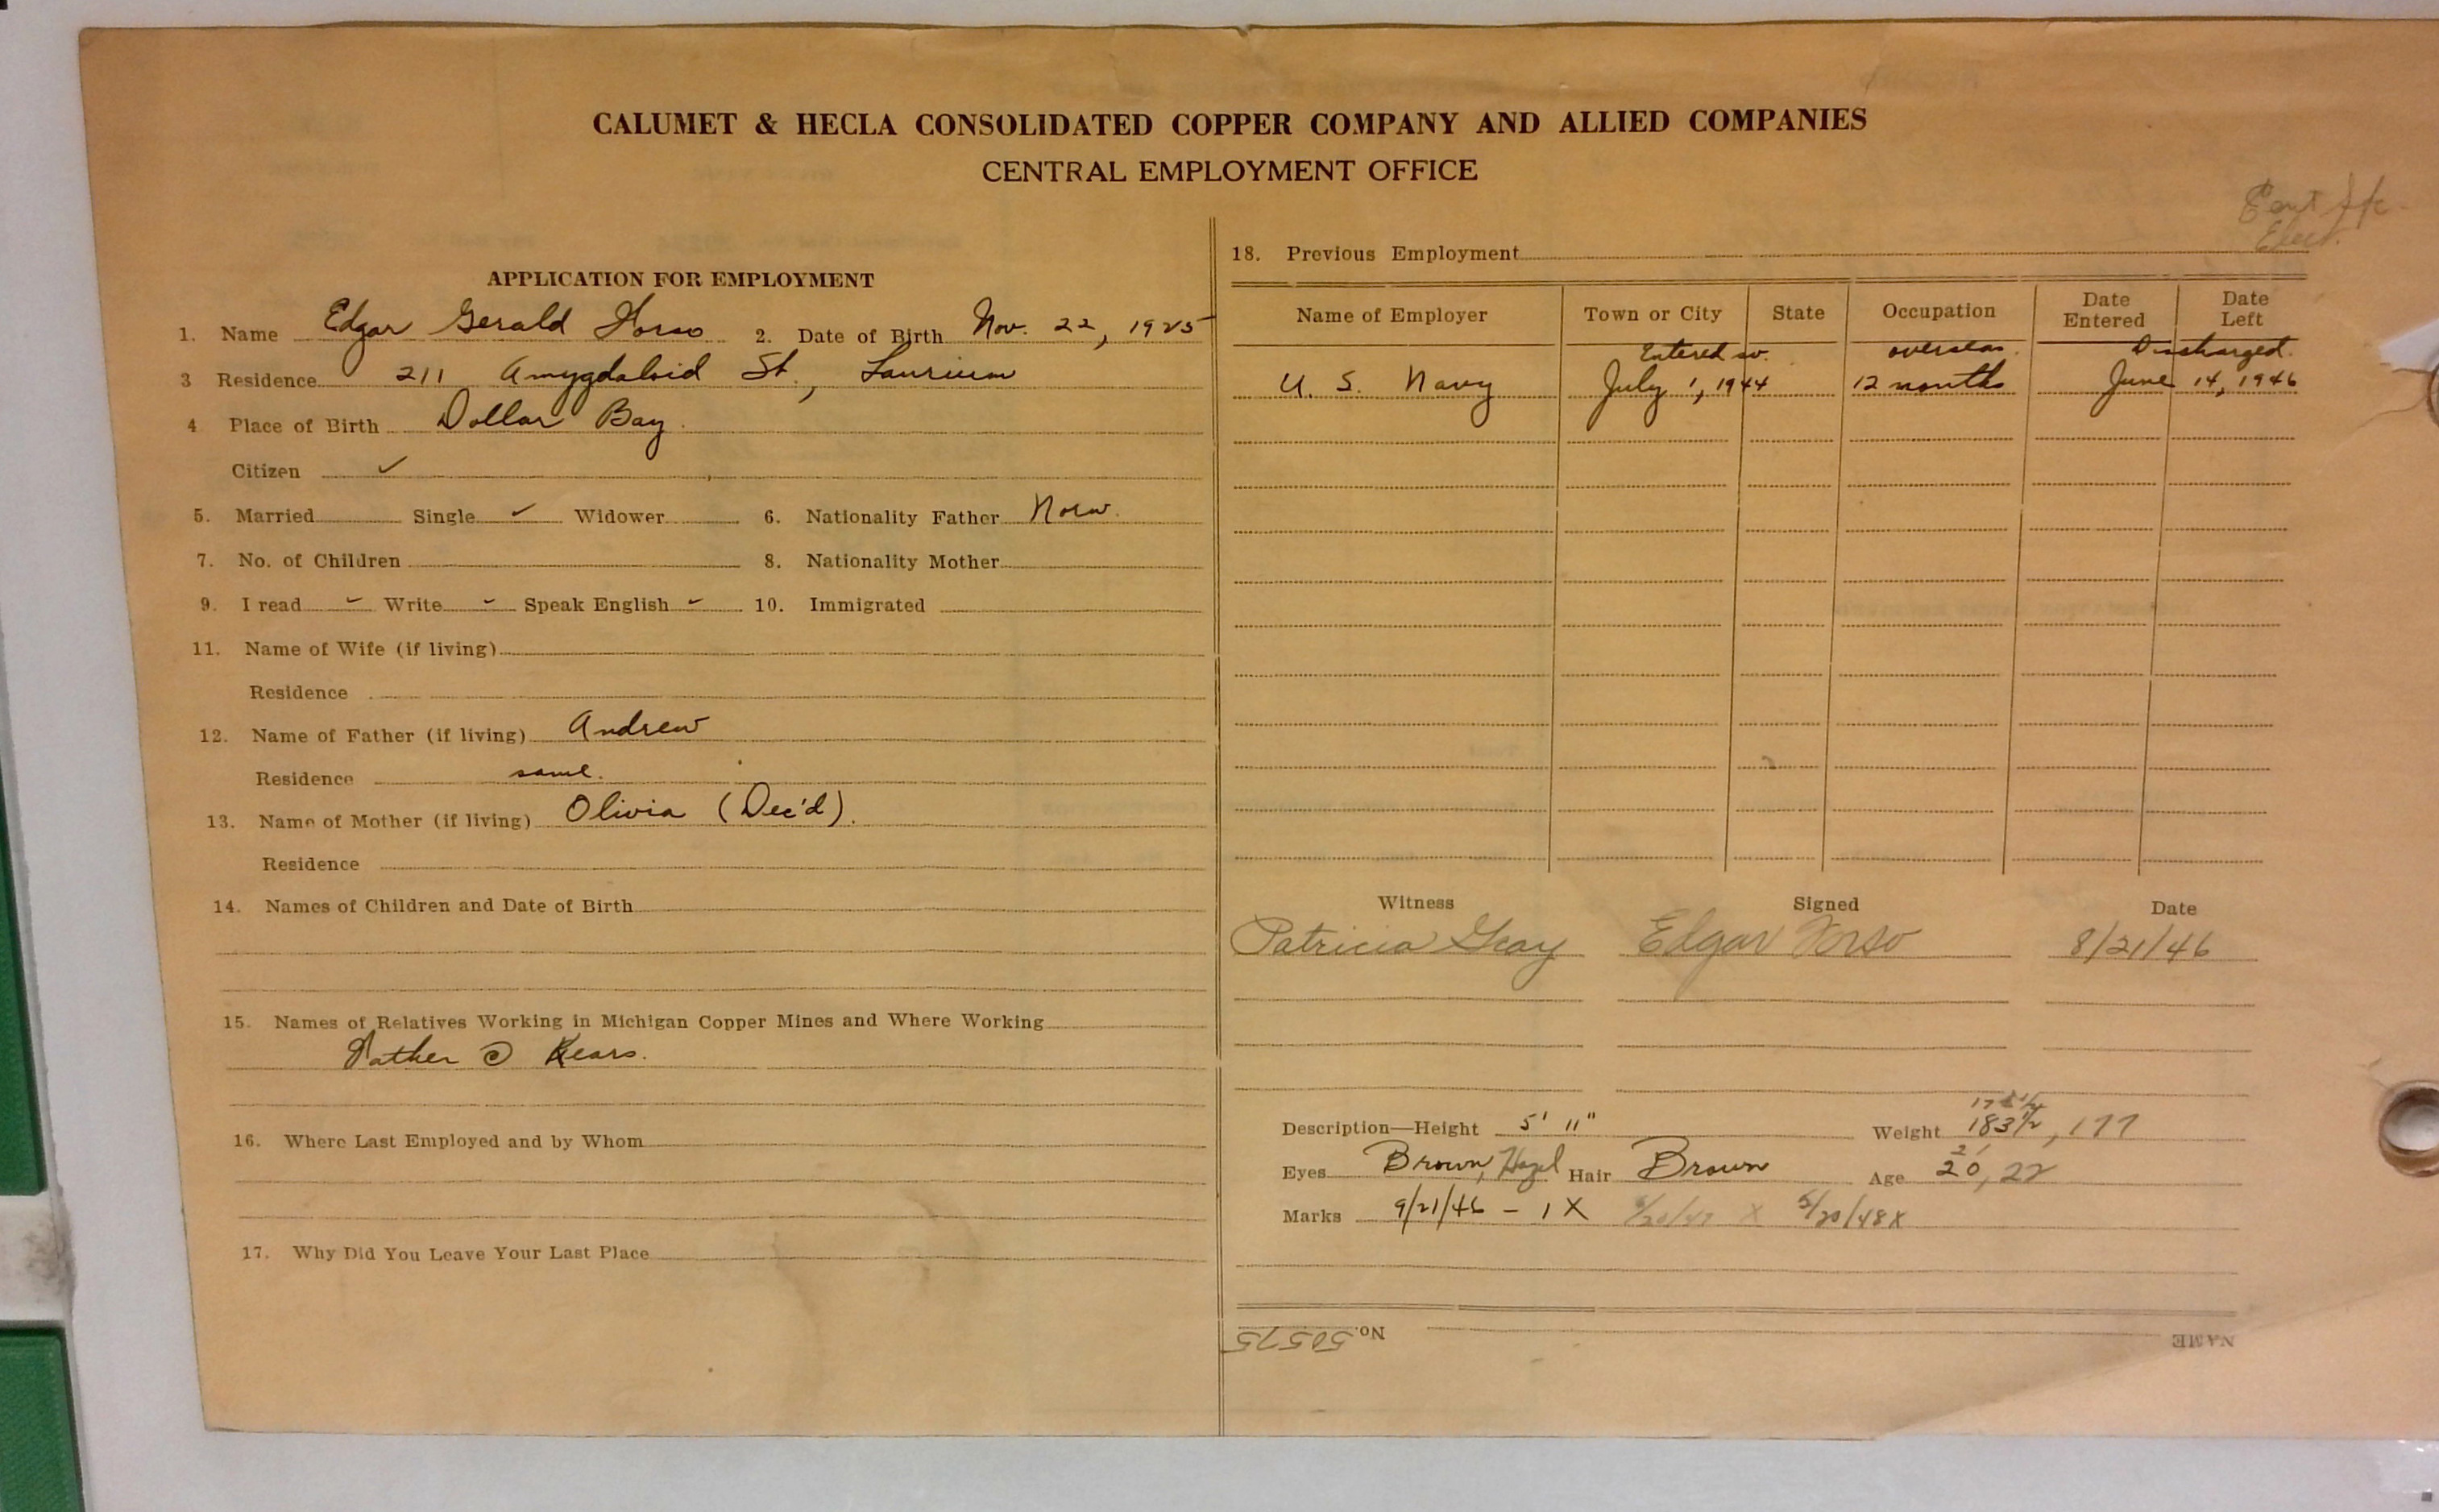 CALUMET & HECLA CONSOLIDATED COPPER COMPANY AND ALLIED COMPANIES
CENTRAL EMPLOYMENT OFFICE
APPLICATION FOR EMPLOYMENT
1. Name Edgar Gerald Forso 2. Date of Birth Nov. 22, 1925
3 Residence 211 Amygdaloid St., Laurium
4 Place of Birth Dollar Bay
Citizen ✓
5. Married Single ✓ Widower 6. Nationality Father Norw.
7. No. of Children 8. Nationality Mother
9. I read ✓ Write ✓ Speak English ✓ 10. Immigrated
11. Name of Wife (if living)
Residence
12. Name of Father (if living) Andrew
Residence same.
13. Name of Mother (if living) Olivia (Dec'd).
Residence
14. Names of Children and Date of Birth
15. Names of Relatives Working in Michigan Copper Mines and Where Working
Father @ Kears.
16. Where Last Employed and by Whom
17. Why Did You Leave Your Last Place
Cent
Elect.
18. Previous Employment
Name of Employer Town or City State Occupation Date Entered Date Left
Entered sv. overseas. Discharged.
U. S. Navy July 1, 1944 12 months June 14, 1946
Witness Signed Date
Patricia Gray Edgar Forso 8/21/46
Description—Height 5' 11" Weight 183½, 177
Eyes Brown, Hazel Hair Brown Age 20, 21, 22
Marks 9/21/46 - 1 X /20/47 X 5/20/48 X
No. 50575 NAME